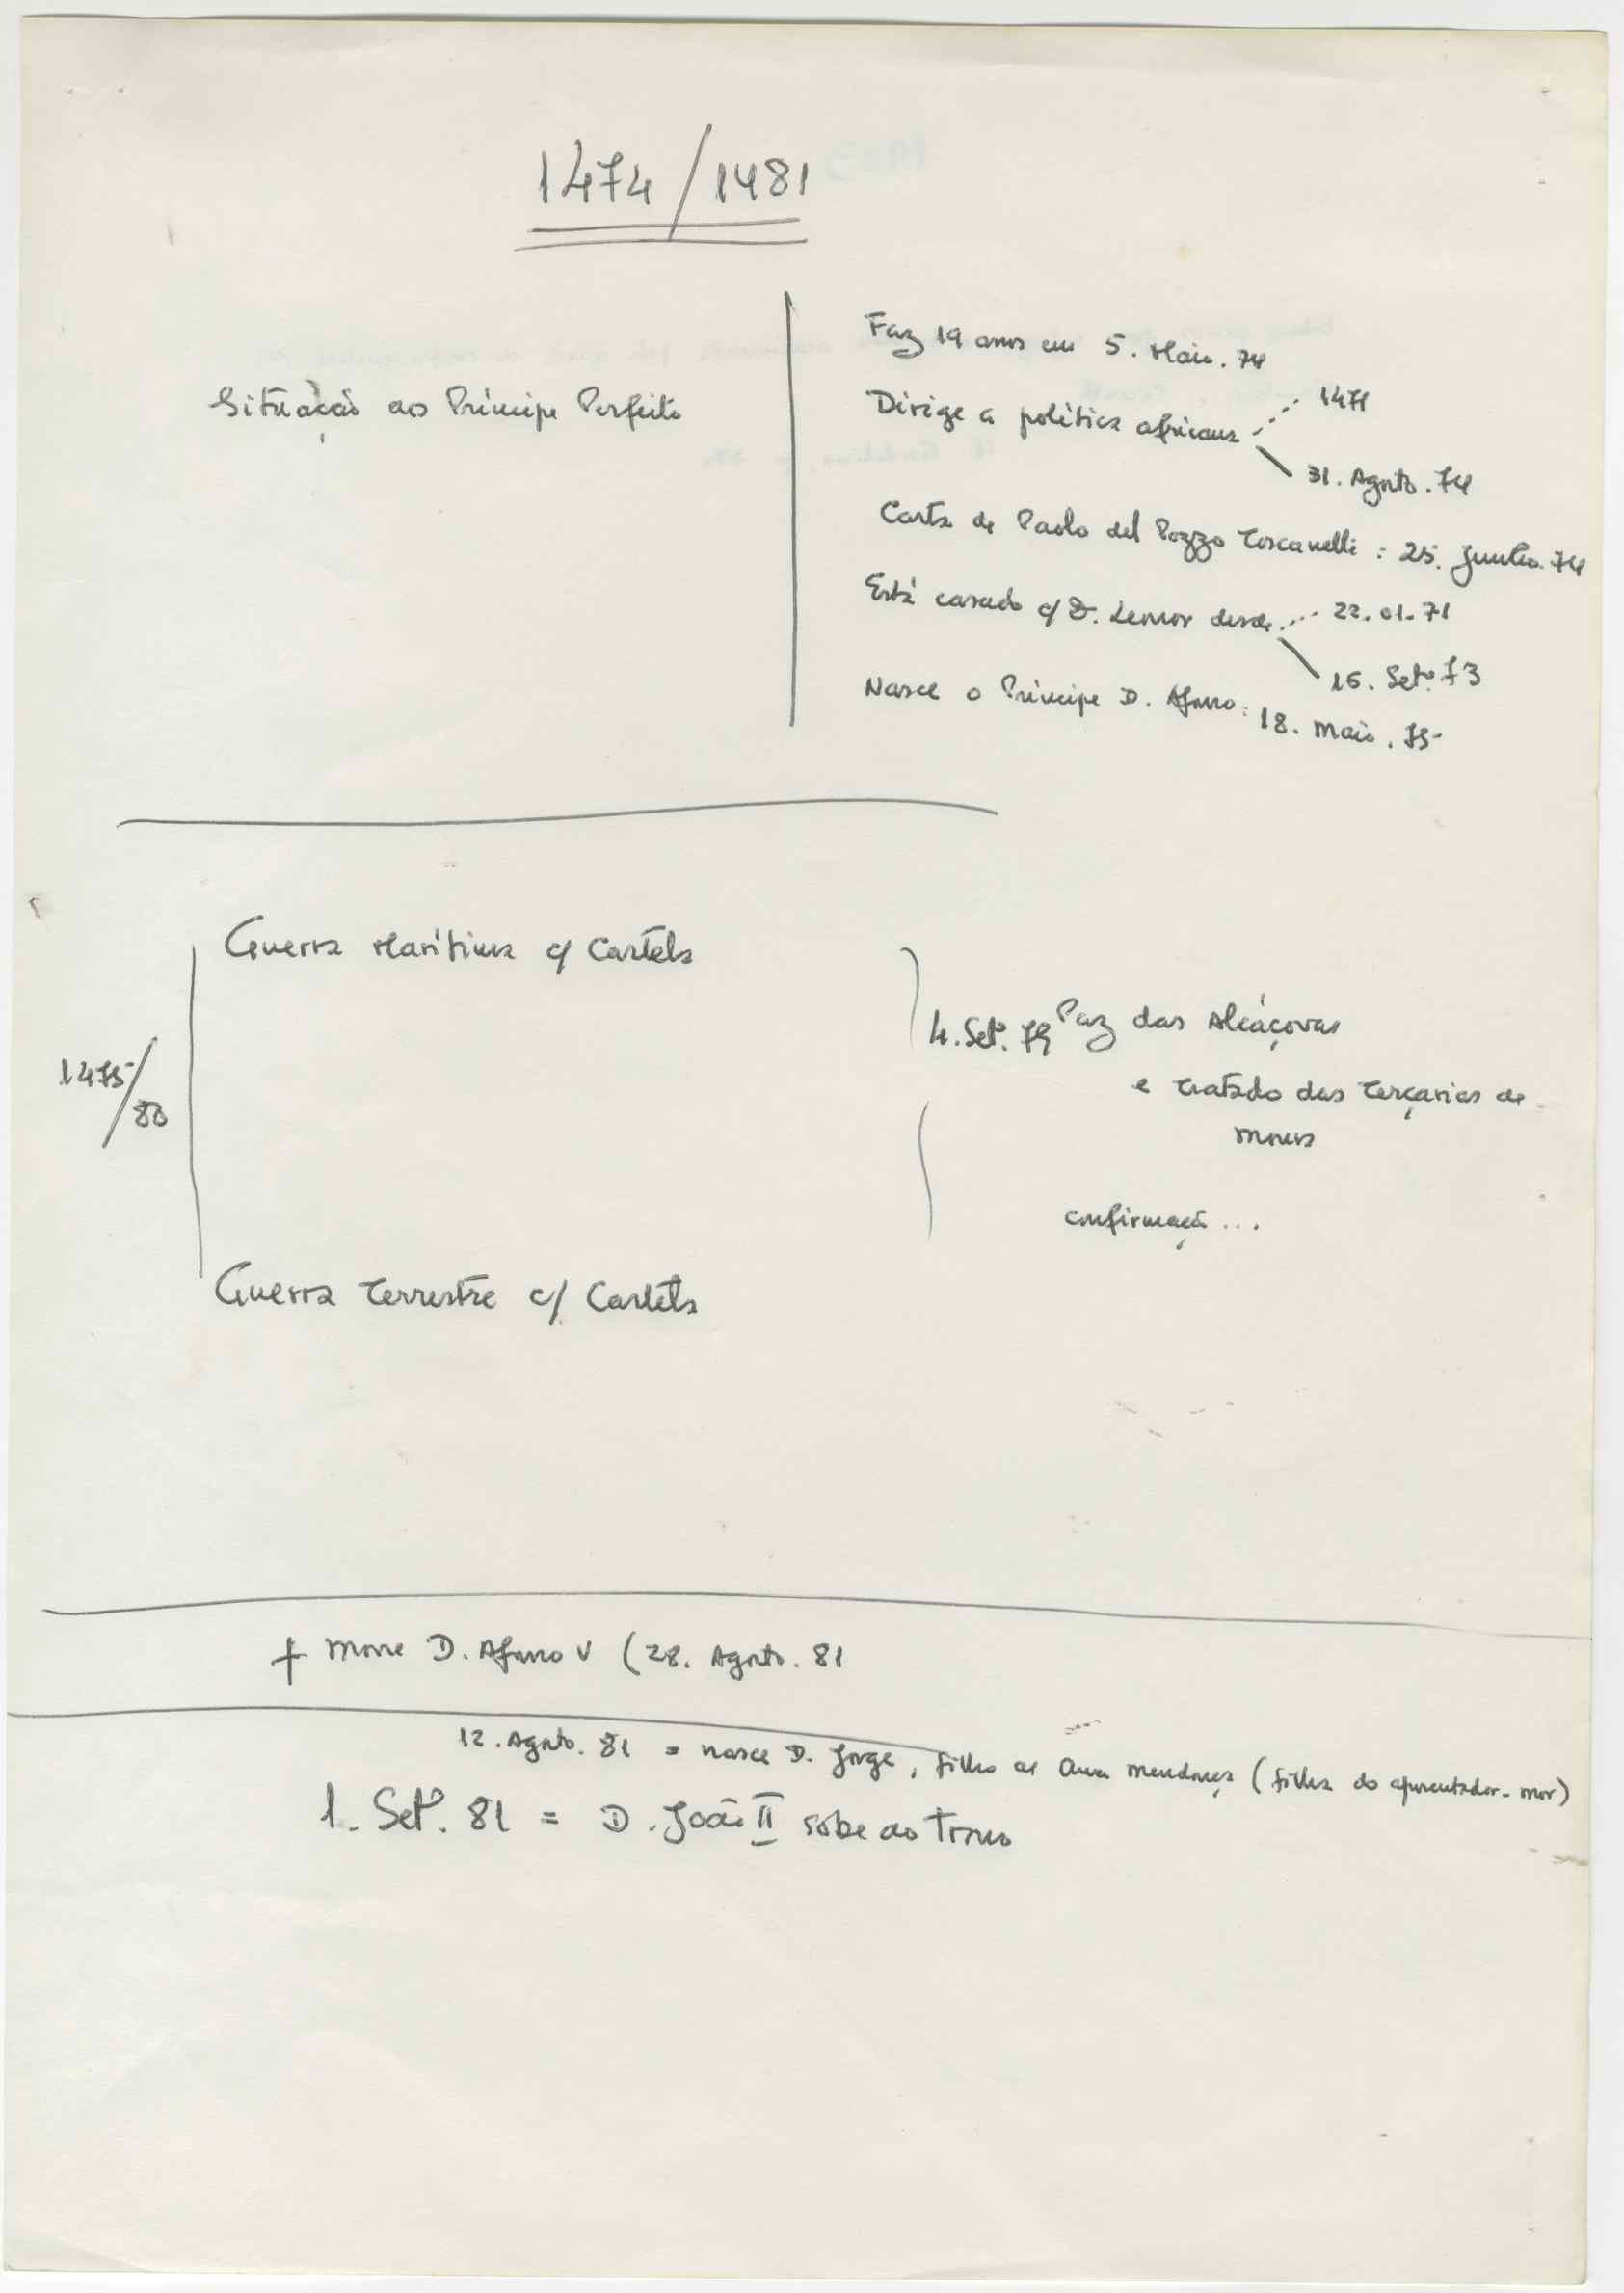 1474/1481
Situação do Príncipe Perfeito
Faz 19 anos em 5. Maio. 74
Dirige a política africana
1471
31. Agosto. 74
Carta de Paolo del Pozzo Toscanelli : 25. Junho. 74
Está casado c/ D. Leonor desde
22.01.71
16. Setº. 73
Nasce o Príncipe D. Afonso: 18. Maio. 75
Guerra Marítima c/ Castela
1475/80
4. Setº. 79 Paz das Alcáçovas
e Tratado das Terçarias de
Moura
confirmação ...
Guerra Terrestre c/ Castela
† Morre D. Afonso V (28. Agosto. 81
12. Agosto. 81 = nasce D. Jorge, filho de Ana Mendonça (filha do aposentador-mor)
1. Setº. 81 = D. João II sobe ao Trono